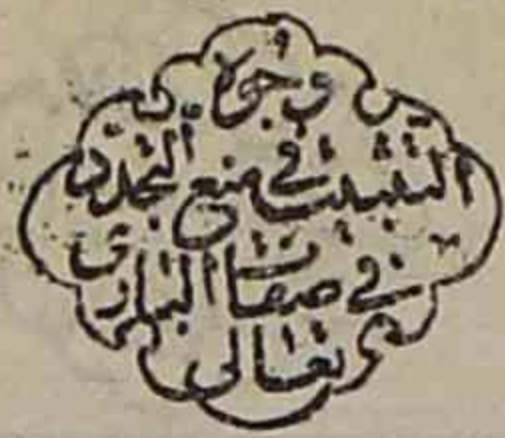 وجوه
التثبيت في منع التجدد
في صفات الباري
تعالى